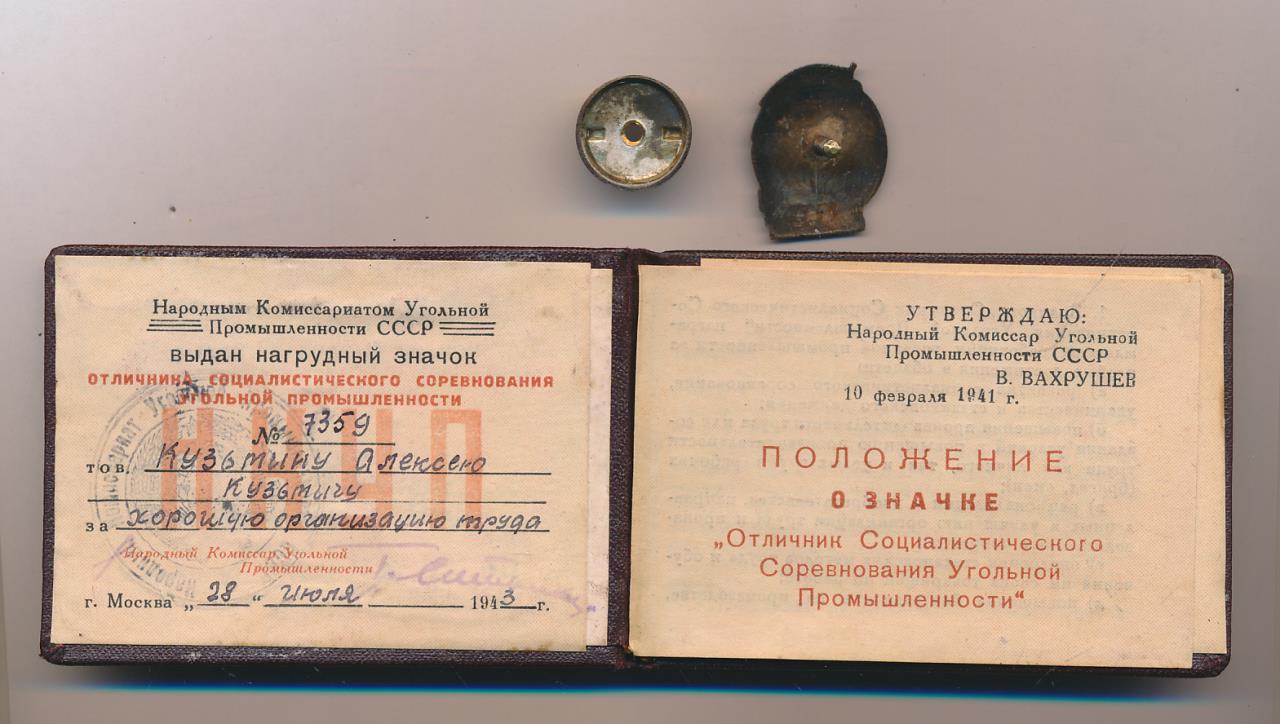 Народным Комиссариатом Угольной
Промышленности СССР
выдан нагрудный значок
ОТЛИЧНИКА СОЦИАЛИСТИЧЕСКОГО СОРЕВНОВАНИЯ
УГОЛЬНОЙ ПРОМЫШЛЕННОСТИ
№ 7359
тов. Кузьмину Алексею
Кузьмичу
за хорошую организацию труда
Народный Комиссар Угольной
Промышленности
г. Москва „28" июля 1943 г.
УТВЕРЖДАЮ:
Народный Комиссар Угольной
Промышленности СССР
В. ВАХРУШЕВ
10 февраля 1941 г.
ПОЛОЖЕНИЕ
О ЗНАЧКЕ
„Отличник Социалистического
Соревнования Угольной
Промышленности"